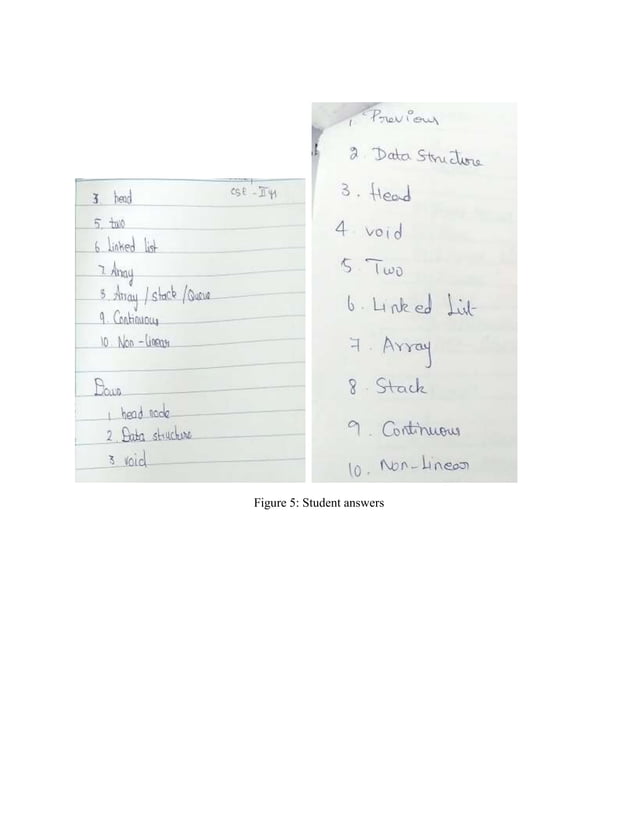 CSE - II yr
3. head
5. two
6 Linked list
7. Array
8. Array / Stack / Queue
9. Continuous
10. Non-linear
Down
1 head node
2. Data structure
3 void
1. Previous
2. Data Structure
3. Head
4. void
5. Two
6. Linked List
7. Array
8. Stack
9. Continuous
10. Non-Linear
Figure 5: Student answers